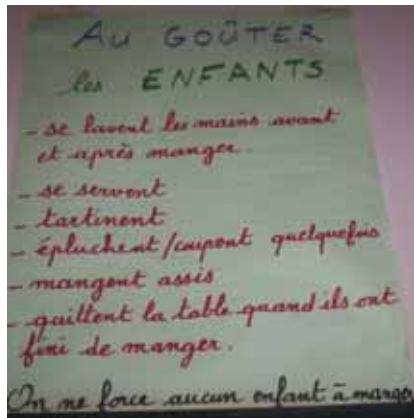 AU GOÛTER
les ENFANTS
- se lavent les mains avant
et après manger.
- se servent
- tartinent
- épluchent/coupent quelquefois
- mangent assis
- quittent la table quand ils ont
fini de manger.
On ne force aucun enfant à manger